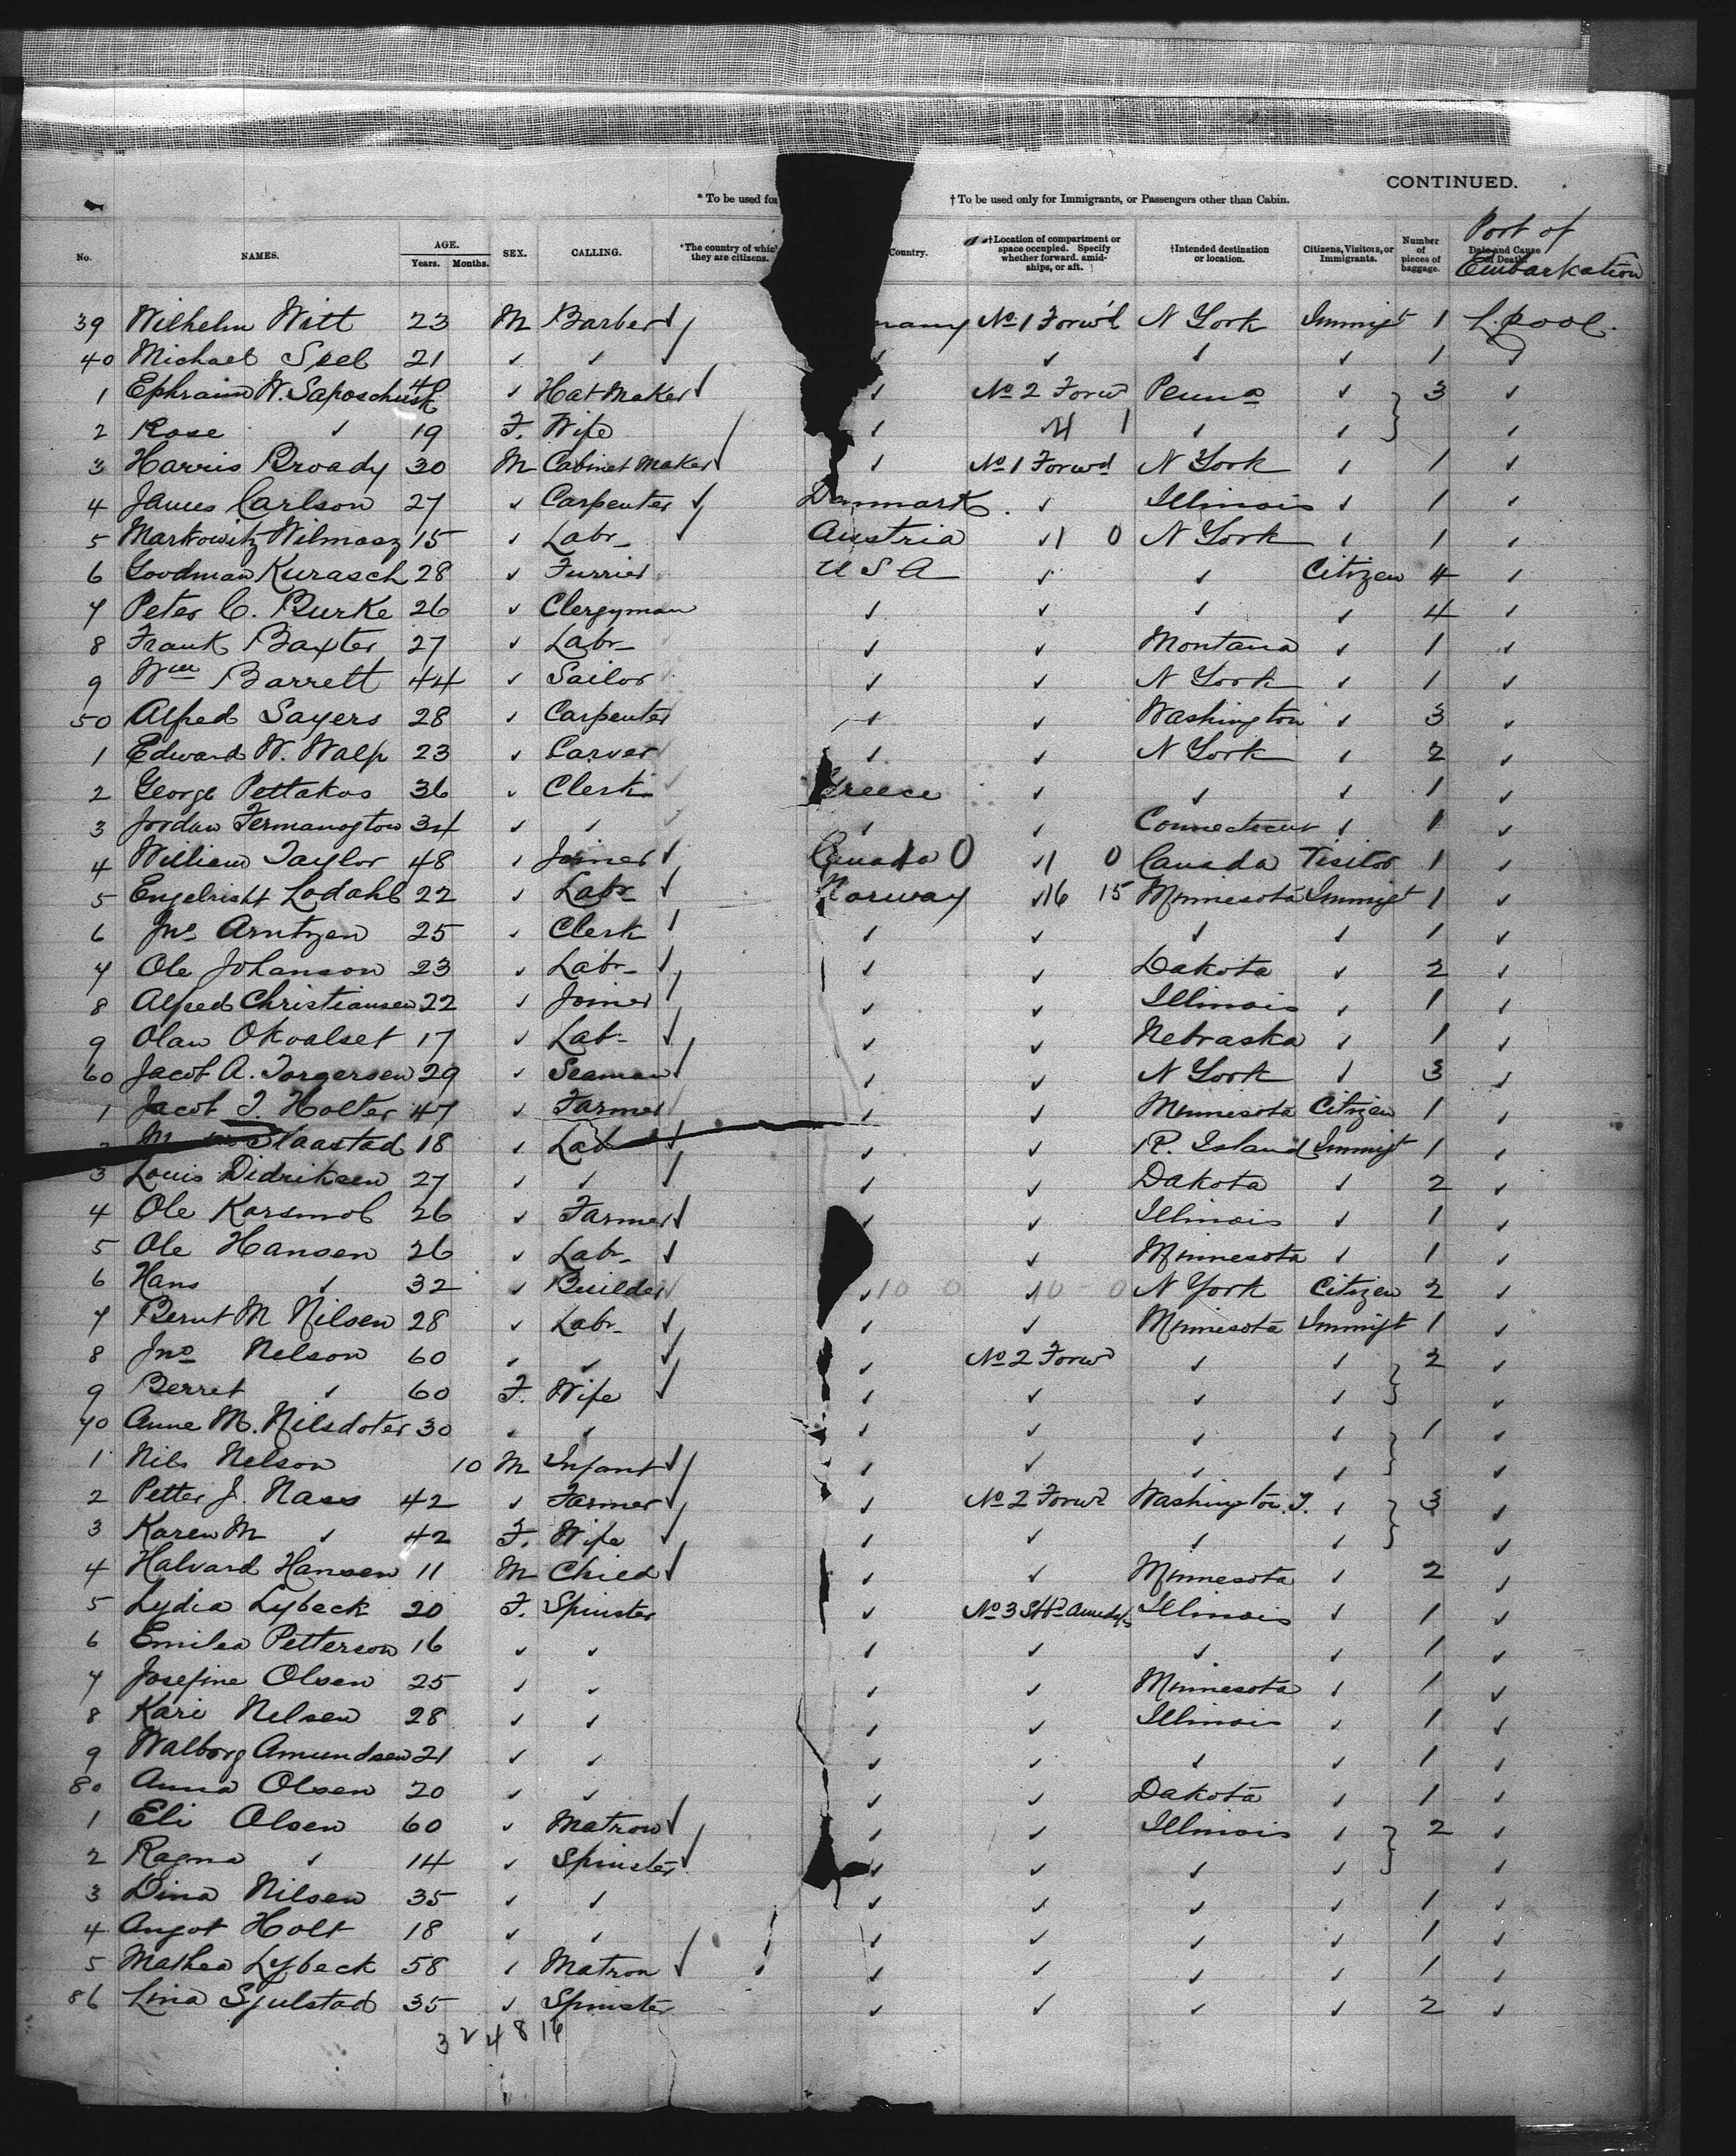 CONTINUED.
* To be used for
† To be used only for Immigrants, or Passengers other than Cabin.
Port of Embarkation
No. NAMES. AGE. Years. Months. SEX. CALLING. *The country of which they are citizens. Country. †Location of compartment or space occupied. Specify whether forward, amidships, or aft. †Intended destination or location. Citizens, Visitors, or Immigrants. Number of pieces of baggage. Date and Cause of Death.
39 Wilhelm Witt 23 M Barber many No 1 Forw'd N York Immigt 1 L.pool.
40 Michael Seel 21 ✓ ✓ ✓ ✓ ✓ ✓ 1 ✓
1 Ephraim W. Saposchusk 48 ✓ Hat Maker ✓ No 2 Forwd Penna ✓ 3 ✓
2 Rose ✓ 19 F. Wife ✓ 4 1 ✓ ✓ ✓
3 Harris Broady 30 M Cabinet Maker ✓ No 1 Forwd N York ✓ 1 ✓
4 James Carlson 27 ✓ Carpenter Denmark ✓ Illinois ✓ 1 ✓
5 Markowitz Wilmosz 15 ✓ Labr Austria ✓ 1 0 N York ✓ 1 ✓
6 Goodman Kurasch 28 ✓ Furrier U S A ✓ ✓ Citizen 4 ✓
7 Peter C. Burke 26 ✓ Clergyman ✓ ✓ ✓ ✓ 4 ✓
8 Frank Baxter 27 ✓ Labr ✓ ✓ Montana ✓ 1 ✓
9 Wm Barrett 44 ✓ Sailor ✓ ✓ N York ✓ 1 ✓
50 Alfred Sayers 28 ✓ Carpenter ✓ ✓ Washington ✓ 3 ✓
1 Edward W. Walp 23 ✓ Carver ✓ ✓ N York ✓ 2 ✓
2 George Pettakos 36 ✓ Clerk Greece ✓ ✓ ✓ 1 ✓
3 Jordan Fermanogtow 34 ✓ ✓ ✓ ✓ Connecticut ✓ 1 ✓
4 William Taylor 48 ✓ Joiner Canada 0 ✓ 1 0 Canada Visitor 1 ✓
5 Engelricht Lodahl 22 ✓ Labr Norway ✓ 16 15 Minnesota Immigt 1 ✓
6 Jno Arntzen 25 ✓ Clerk ✓ ✓ ✓ ✓ 1 ✓
7 Ole Johanson 23 ✓ Labr ✓ ✓ Dakota ✓ 2 ✓
8 Alfred Christiansen 22 ✓ Joiner ✓ ✓ Illinois ✓ 1 ✓
9 Olaw Okvalset 17 ✓ Labr ✓ ✓ Nebraska ✓ 1 ✓
60 Jacob A. Torgersen 29 ✓ Seaman ✓ ✓ N York ✓ 3 ✓
1 Jacob T. Holter 47 ✓ Farmer ✓ ✓ Minnesota Citizen 1 ✓
2 18 ✓ Lab ✓ ✓ R. Island Immigt 1 ✓
3 Louis Didriksen 27 ✓ ✓ ✓ ✓ Dakota ✓ 2 ✓
4 Ole Karsmol 26 ✓ Farmer ✓ ✓ Illinois ✓ 1 ✓
5 Ole Hansen 26 ✓ Labr ✓ Minnesota ✓ 1 ✓
6 Hans ✓ 32 ✓ Builder ✓ 10 0 ✓ 10 0 N York Citizen 2 ✓
7 Bernt M Nilsen 28 ✓ Labr ✓ ✓ Minnesota Immigt 1 ✓
8 Jno Nelson 60 ✓ ✓ ✓ No 2 Forwd ✓ ✓ 2 ✓
9 Berret ✓ 60 F. Wife ✓ ✓ ✓ ✓ ✓
70 Anne M. Nilsdoter 30 ✓ ✓ ✓ ✓ ✓ ✓ 1 ✓
1 Nils Nelson 10 M Infant ✓ ✓ ✓ ✓ ✓
2 Petter J. Nass 42 ✓ Farmer ✓ No 2 Forwd Washington T. ✓ 3 ✓
3 Karen M ✓ 42 F. Wife ✓ ✓ ✓ ✓ ✓
4 Halvard Hansen 11 M Child ✓ ✓ Minnesota ✓ 2 ✓
5 Lydia Lybeck 20 F. Spinster ✓ No 3 Illinois ✓ 1 ✓
6 Emilea Petterson 16 ✓ ✓ ✓ ✓ ✓ ✓ 1 ✓
7 Josefine Olsen 25 ✓ ✓ ✓ ✓ Minnesota ✓ 1 ✓
8 Kari Nelsen 28 ✓ ✓ ✓ ✓ Illinois ✓ 1 ✓
9 Walborg Amundsen 21 ✓ ✓ ✓ ✓ ✓ ✓ 1 ✓
80 Anna Olsen 20 ✓ ✓ ✓ ✓ Dakota ✓ 1 ✓
1 Eli Olsen 60 ✓ Matron ✓ ✓ Illinois ✓ 2 ✓
2 Ragna ✓ 14 ✓ Spinster ✓ ✓ ✓ ✓ ✓
3 Dina Nilsen 35 ✓ ✓ ✓ ✓ ✓ ✓ 1 ✓
4 Angot Holt 18 ✓ ✓ ✓ ✓ ✓ ✓ 1 ✓
5 Mathea Lybeck 58 ✓ Matron ✓ ✓ ✓ ✓ 1 ✓
86 Lina Sjulstad 35 ✓ Spinster ✓ ✓ ✓ ✓ 2 ✓
3 2 4 8 16